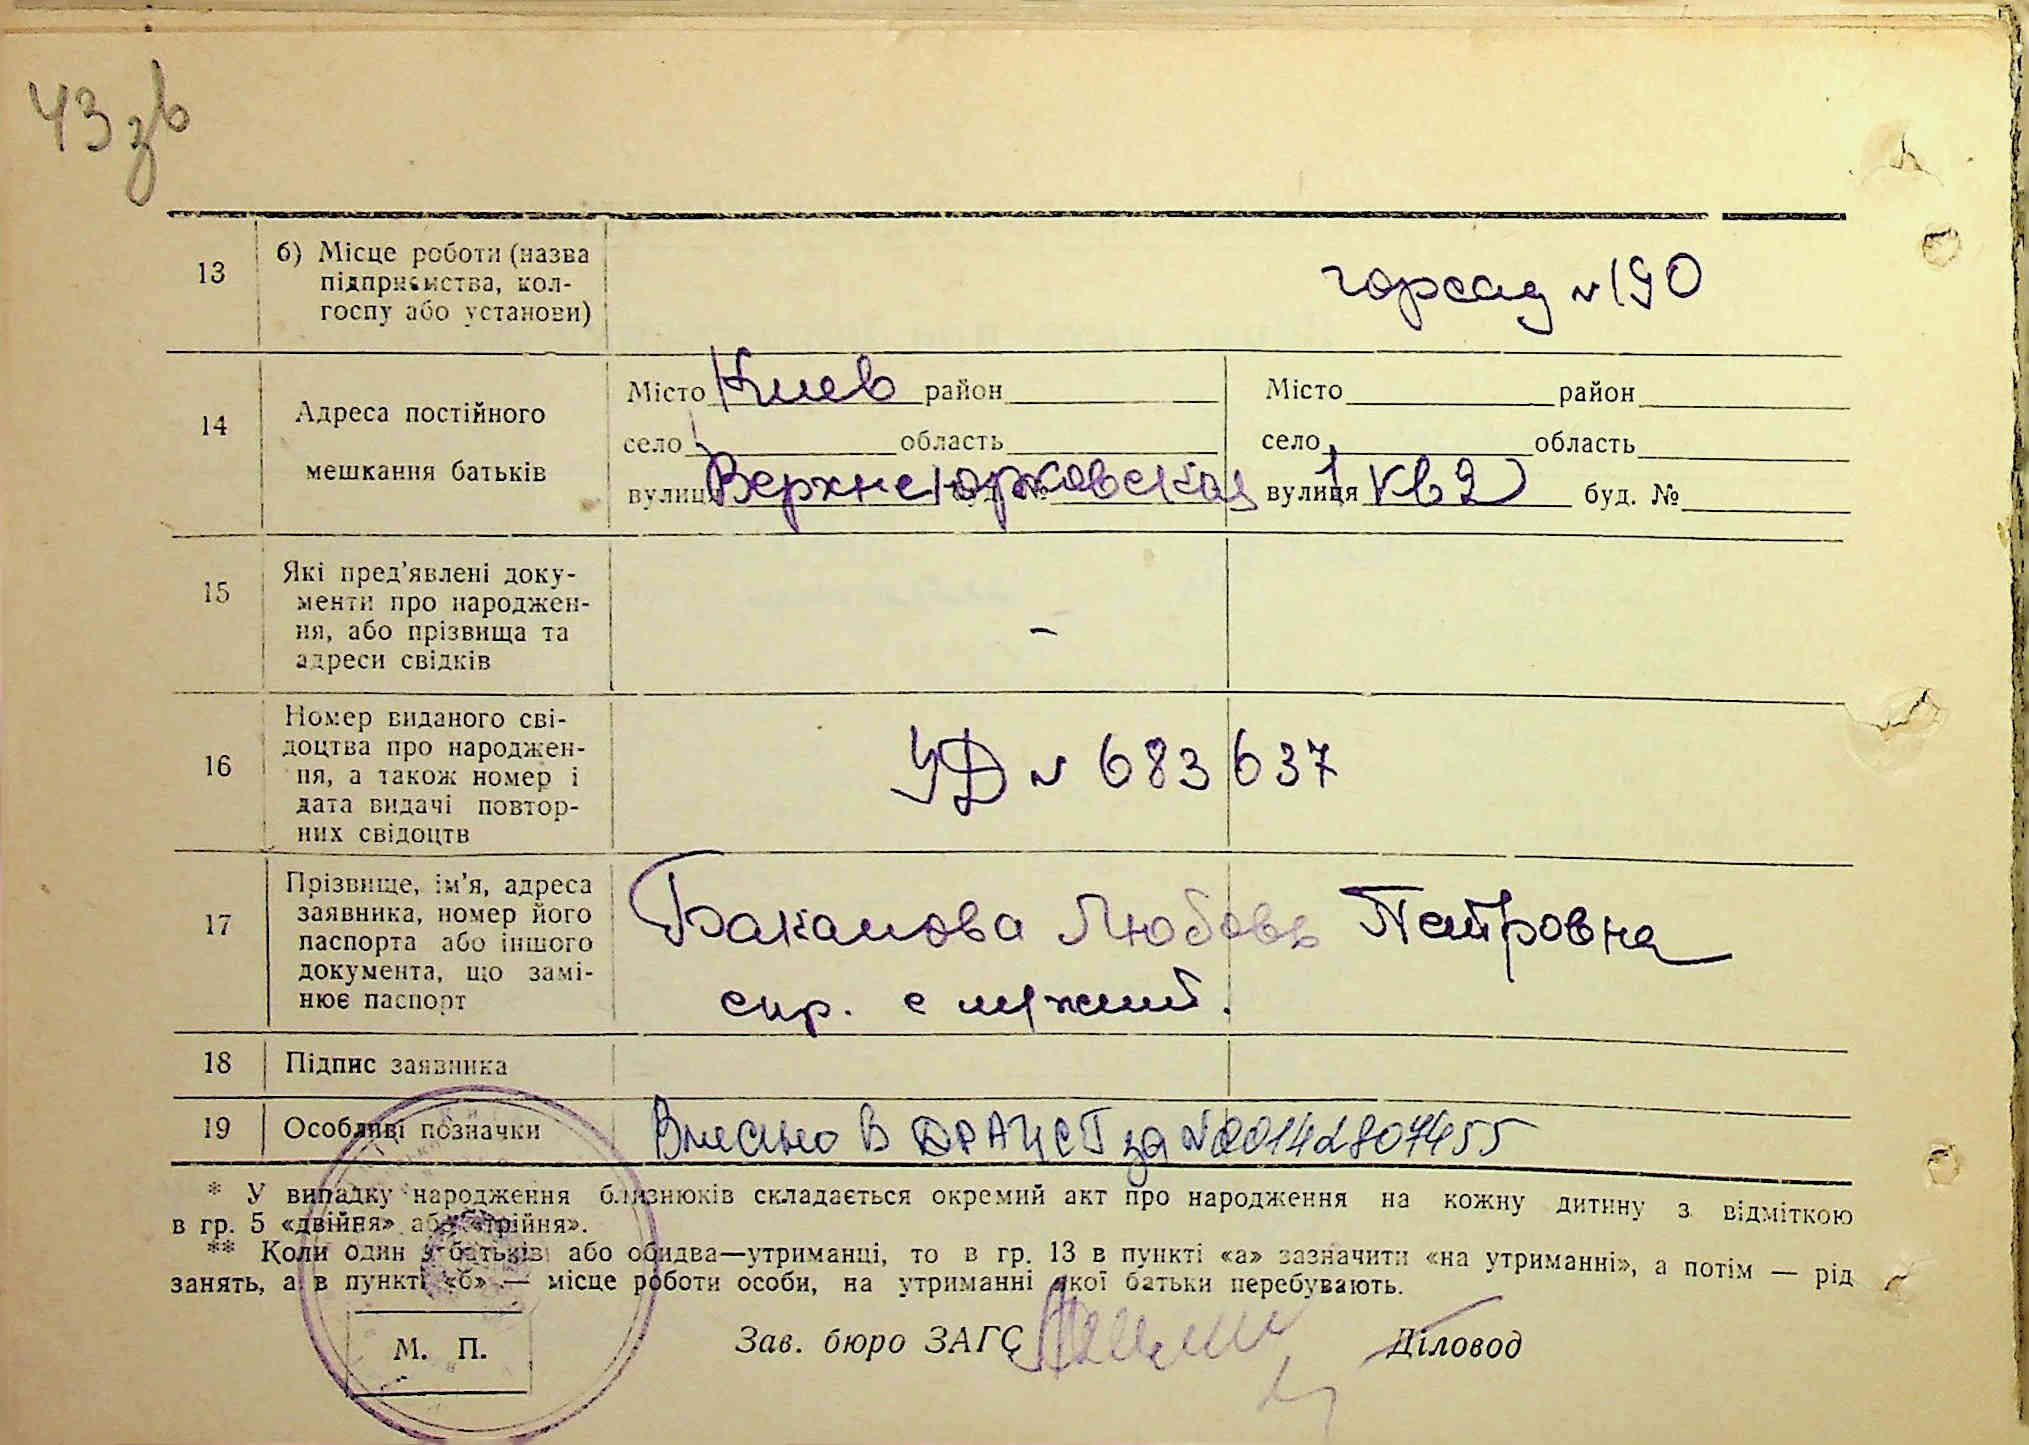 43 зв
13
б) Місце роботи (назва
підприємства, кол-
госпу або установи)
горсад № 190
14
Адреса постійного
мешкання батьків
Місто Киев район
село область
вулиця Верхнеюрковская буд. №
Місто район
село область
вулиця 1 кв 2 буд. №
15
Які пред'явлені доку-
менти про народжен-
ня, або прізвища та
адреси свідків
–
16
Номер виданого сві-
доцтва про народжен-
ня, а також номер і
дата видачі повтор-
них свідоцтв
УД № 683637
17
Прізвище, ім'я, адреса
заявника, номер його
паспорта або іншого
документа, що замі-
нює паспорт
Баканова Любовь Петровна
спр. с
18
Підпис заявника
19
Особливі позначки
Внесено в ДРАЦСГ за № 00142807455
* У випадку народження близнюків складається окремий акт про народження на кожну дитину з відміткою
в гр. 5 «двійня» або «трійня».
** Коли один з батьків або обидва—утриманці, то в гр. 13 в пункті «а» зазначити «на утриманні», а потім — рід
занять, а в пункті «б» — місце роботи особи, на утриманні якої батьки перебувають.
М. П.
Зав. бюро ЗАГС
Діловод